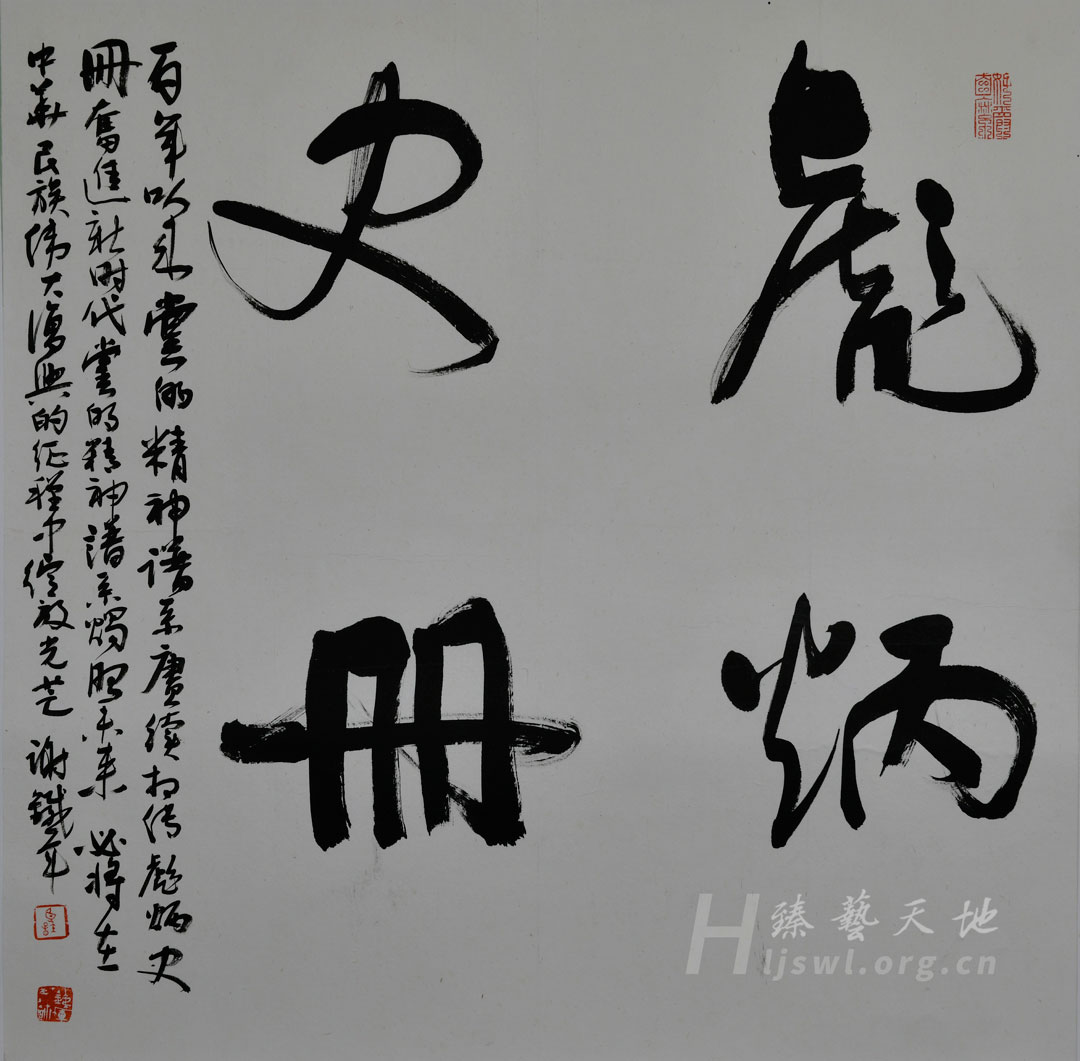 彪炳
史册
百年以来党的精神谱系赓续相传彪炳史
册奋进新时代党的精神谱系烛照未来必将在
中华民族伟大复兴的征程中绽放光芒 谢鐵军
臻藝天地
Hljswl.org.cn